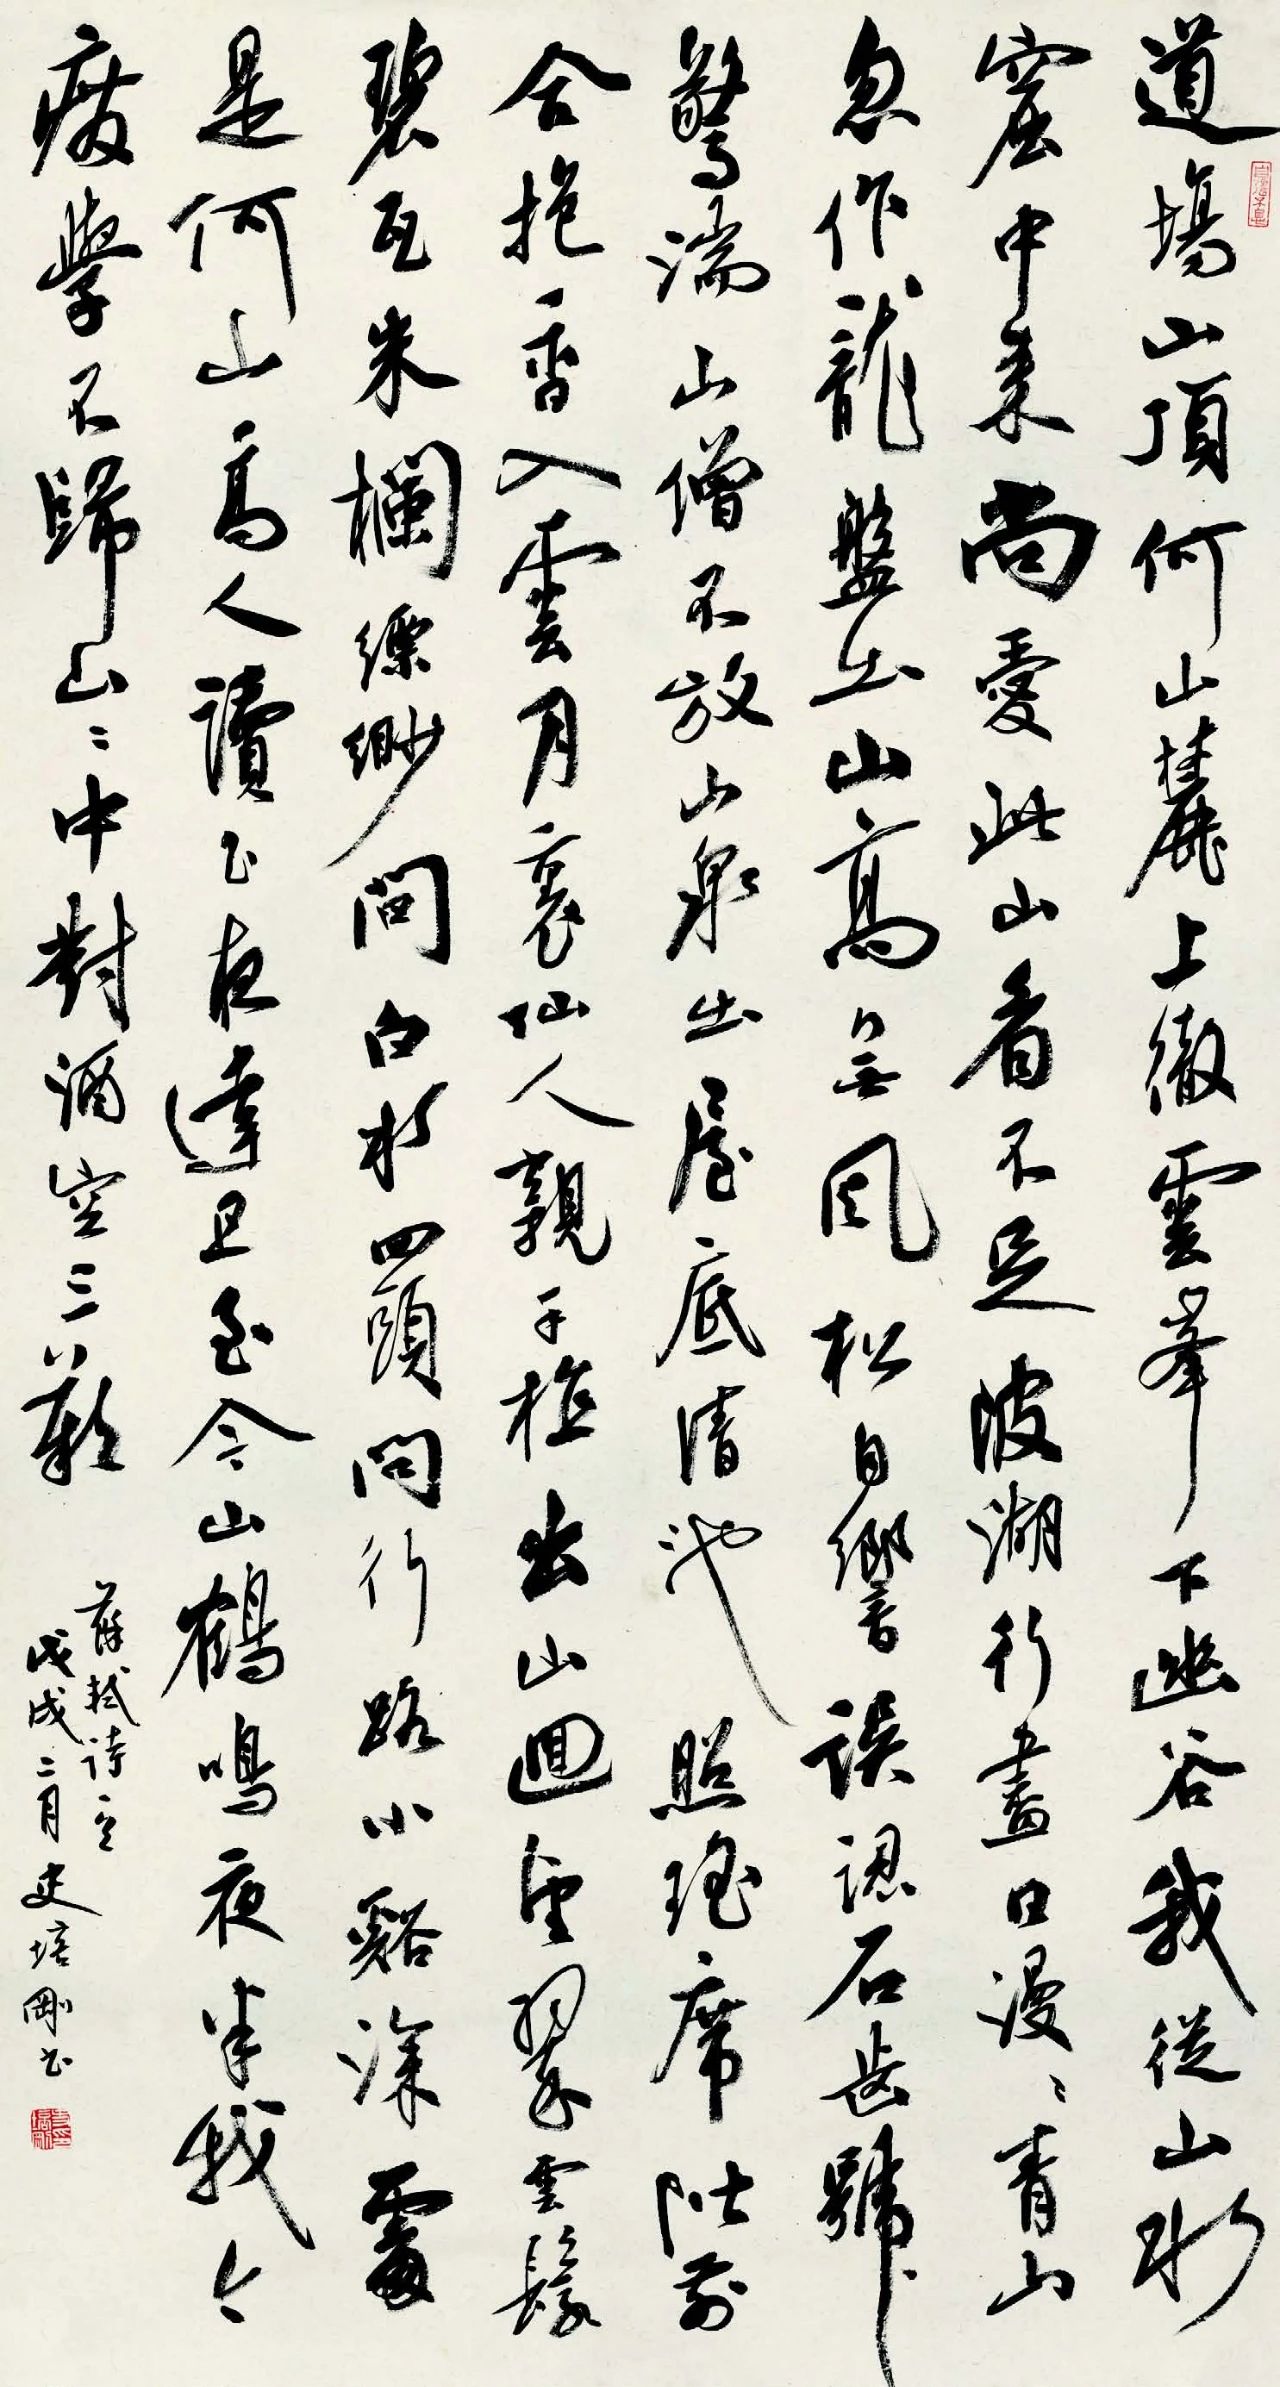 道場山頂何山麓上徹雲峯下幽谷我從山水
窟中來尚愛此山看不足陂湖行盡白漫〻青山
忽作龍盤出山高無風松自響誤認石齒號
驚湍山僧不放山泉出屋底清池照瑤席階前
合抱香入雲月裏仙人親手植出山迴望翠雲鬟
碧瓦朱欄縹緲間白水田頭問行路小谿深處
是何山高人讀書夜達旦至今山鶴鳴夜半我今
廢學不歸山〻中對酒空三歎
蘇軾詩
戊戌二月史培剛書